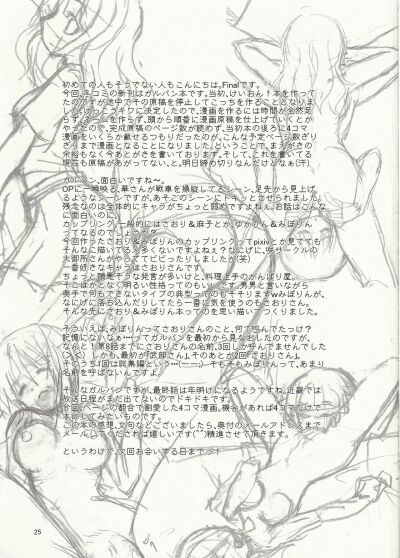 初めての人もそうでない人もこんにちは。Finalです。
今回、冬コミの新刊はガルパン本です。当初、けいおん！本を作って
たのですが途中でその原稿を停止してこっちを作ることとなりま
作るには時間が全然足
頭から順番に漫画原稿を仕上げていくとか
やったので、完成原稿のページ数が読めず、当初本の後ろに4コマ
漫画をいくらか載せるつもりだったのが、こんな予定ページ数ぎり
ぎりまで漫画となることになりました。ということで、まえがきの
余裕もなく今あとがきを書いております。そして、これを書いてる
現在も原稿があがってない。と、明日締め切りなんだけどねぇ(汗)
ガルパン、面白いですね～。
OPに一瞬映る、華さんが戦車を操縦してるシーン、足先から見上げ
るようなシーンですが、あそこのシーンにドキッとさせられました。
残念なのは全体的にキャラがちょっと弱めですよねぇ。お話はこんな
に面白いのに。
カップリング、一般的にはさおり＆麻子とか、ゆかりん＆みぽりん
ってなるのでしょうか？
今回作ったさおり＆みぽりんのカップリングってpixivとか見てても
そんなに描いてる人多くないですよねぇ？なにげに、
大御所さんがやってててビビったりしましたが(笑)
一番好きなキャラはさおりさんです。
ちょっと頭悪そうな発言が多いけど、料理上手のがんばり屋。
そこはかとなく明るい性格ってのもいいです。男男と言いながら
奥手で何もできないタイプの典型ってのもそそりますwみぽりんが、
なにげに落ち込んだりしてたら一番に気を使うのもさおりさん。
そんな先にさおり＆みぽりん本ってのを思い描いてつくりました。
そういえば、みぽりんってさおりさんのこと、何て呼んでたっけ？
記憶にないなぁ…ってガルパンを最初から見なおしたのですが、
なんと！第8話までにさおりさんの名前、3回しか呼んでませんでした
しかも、最初が「武部さん」。そのあとが2回「さおりさん」。
そのうち1回は総集編という…(ーー;)　そもそもみぽりんって、あまり
名前を呼ばないんですよ。
そんなガルパンですが、最終話は年明けになるようですね。近畿では
放送日程がまだ出てないのでドキドキです。
今回、ページの都合で割愛した4コマ漫画。機会があれば4コマだけで
本にしてみたいものです。
この本の感想、文句などございましたら、奥付のメールアドレスまで
メールしてくだされば嬉しいです(^^)精進させて頂きます。
というわけで、次回お会いする日までっ！
25